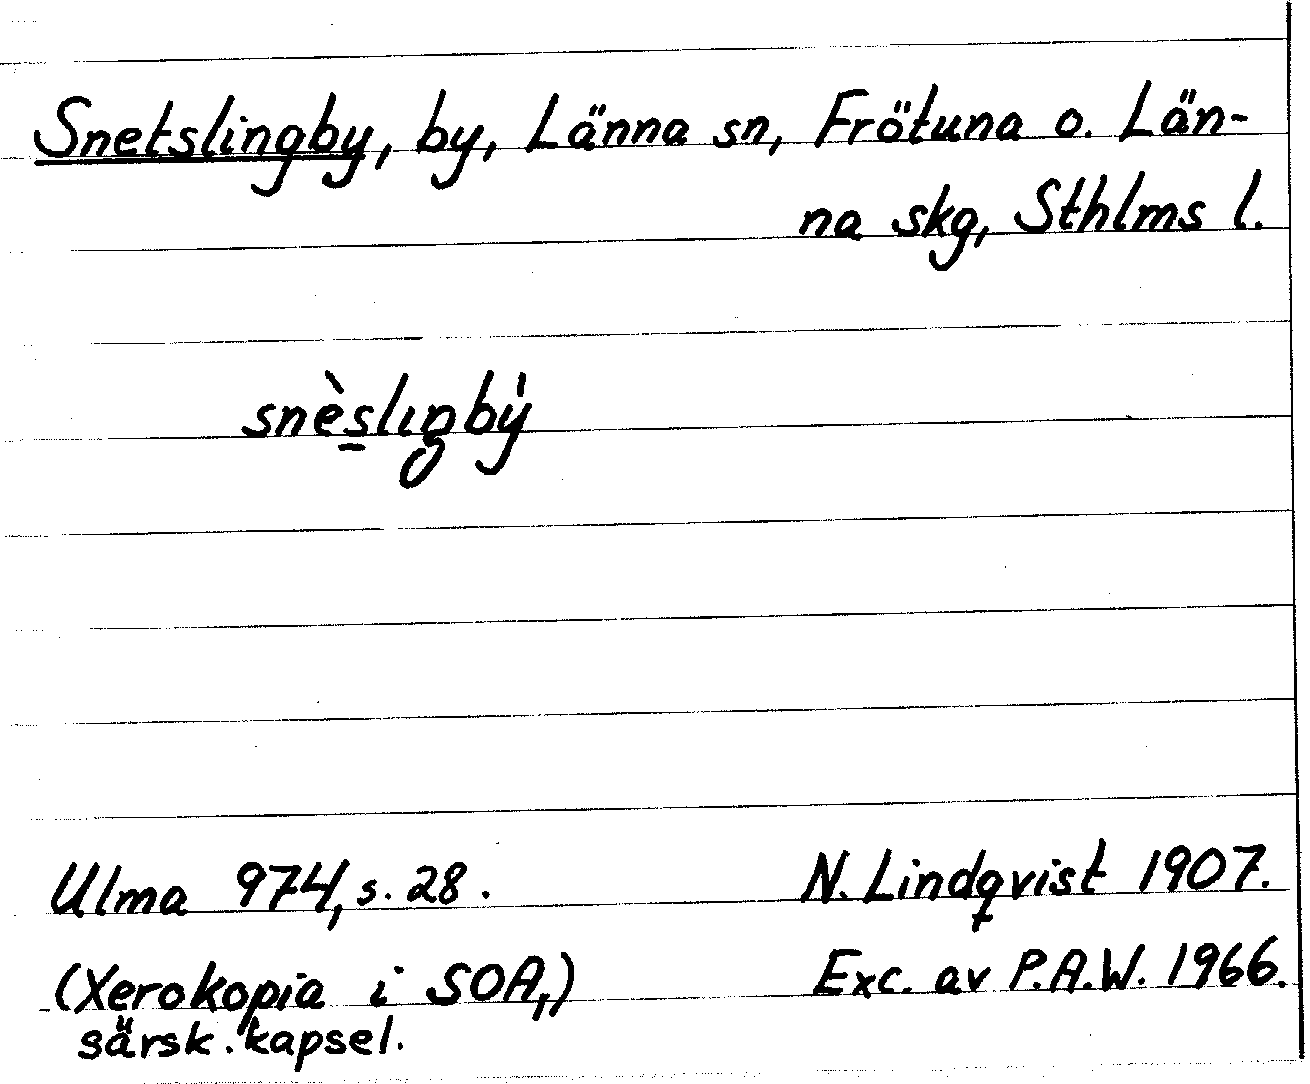 Snetslingby, by, Länna sn, Frötuna o. Län-
na skg, Sthlms l.
snès̱lıŋbẏ
Ulma 974, s. 28.
N. Lindqvist 1907.
(Xerokopia i SOA,)
Exc. av P.A.W. 1966.
särsk. kapsel.